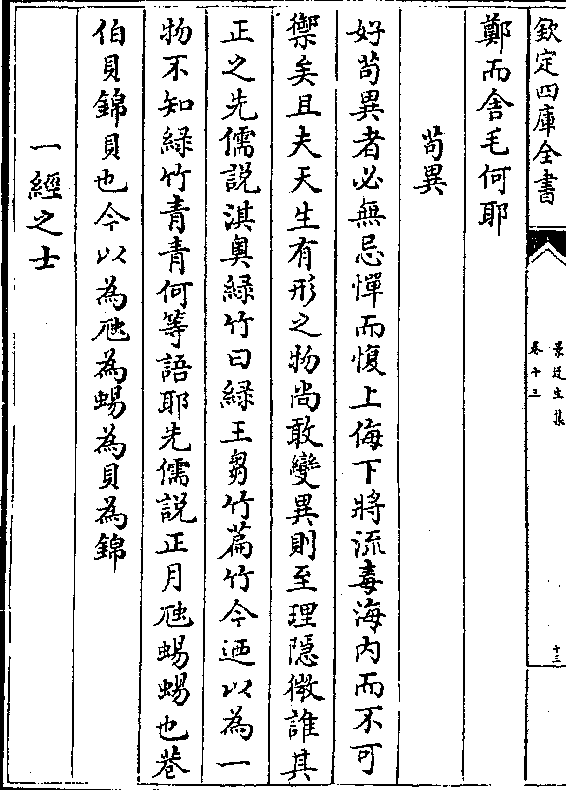 欽定四庫全書
景迂生集
卷十三
十三
鄭而舍毛何耶
茍異
好茍異者必無忌憚而愎上侮下將流毒海内而不可
禦矣且夫天生有形之物尚敢變異則至理隠微誰其
正之先儒説淇奥緑竹曰緑王芻竹篇竹今廼以為一
物不知緑竹青青何等語耶先儒説正月虺蜴蜴也巷
伯貝錦貝也今以為虺為蜴為貝為錦
一經之士